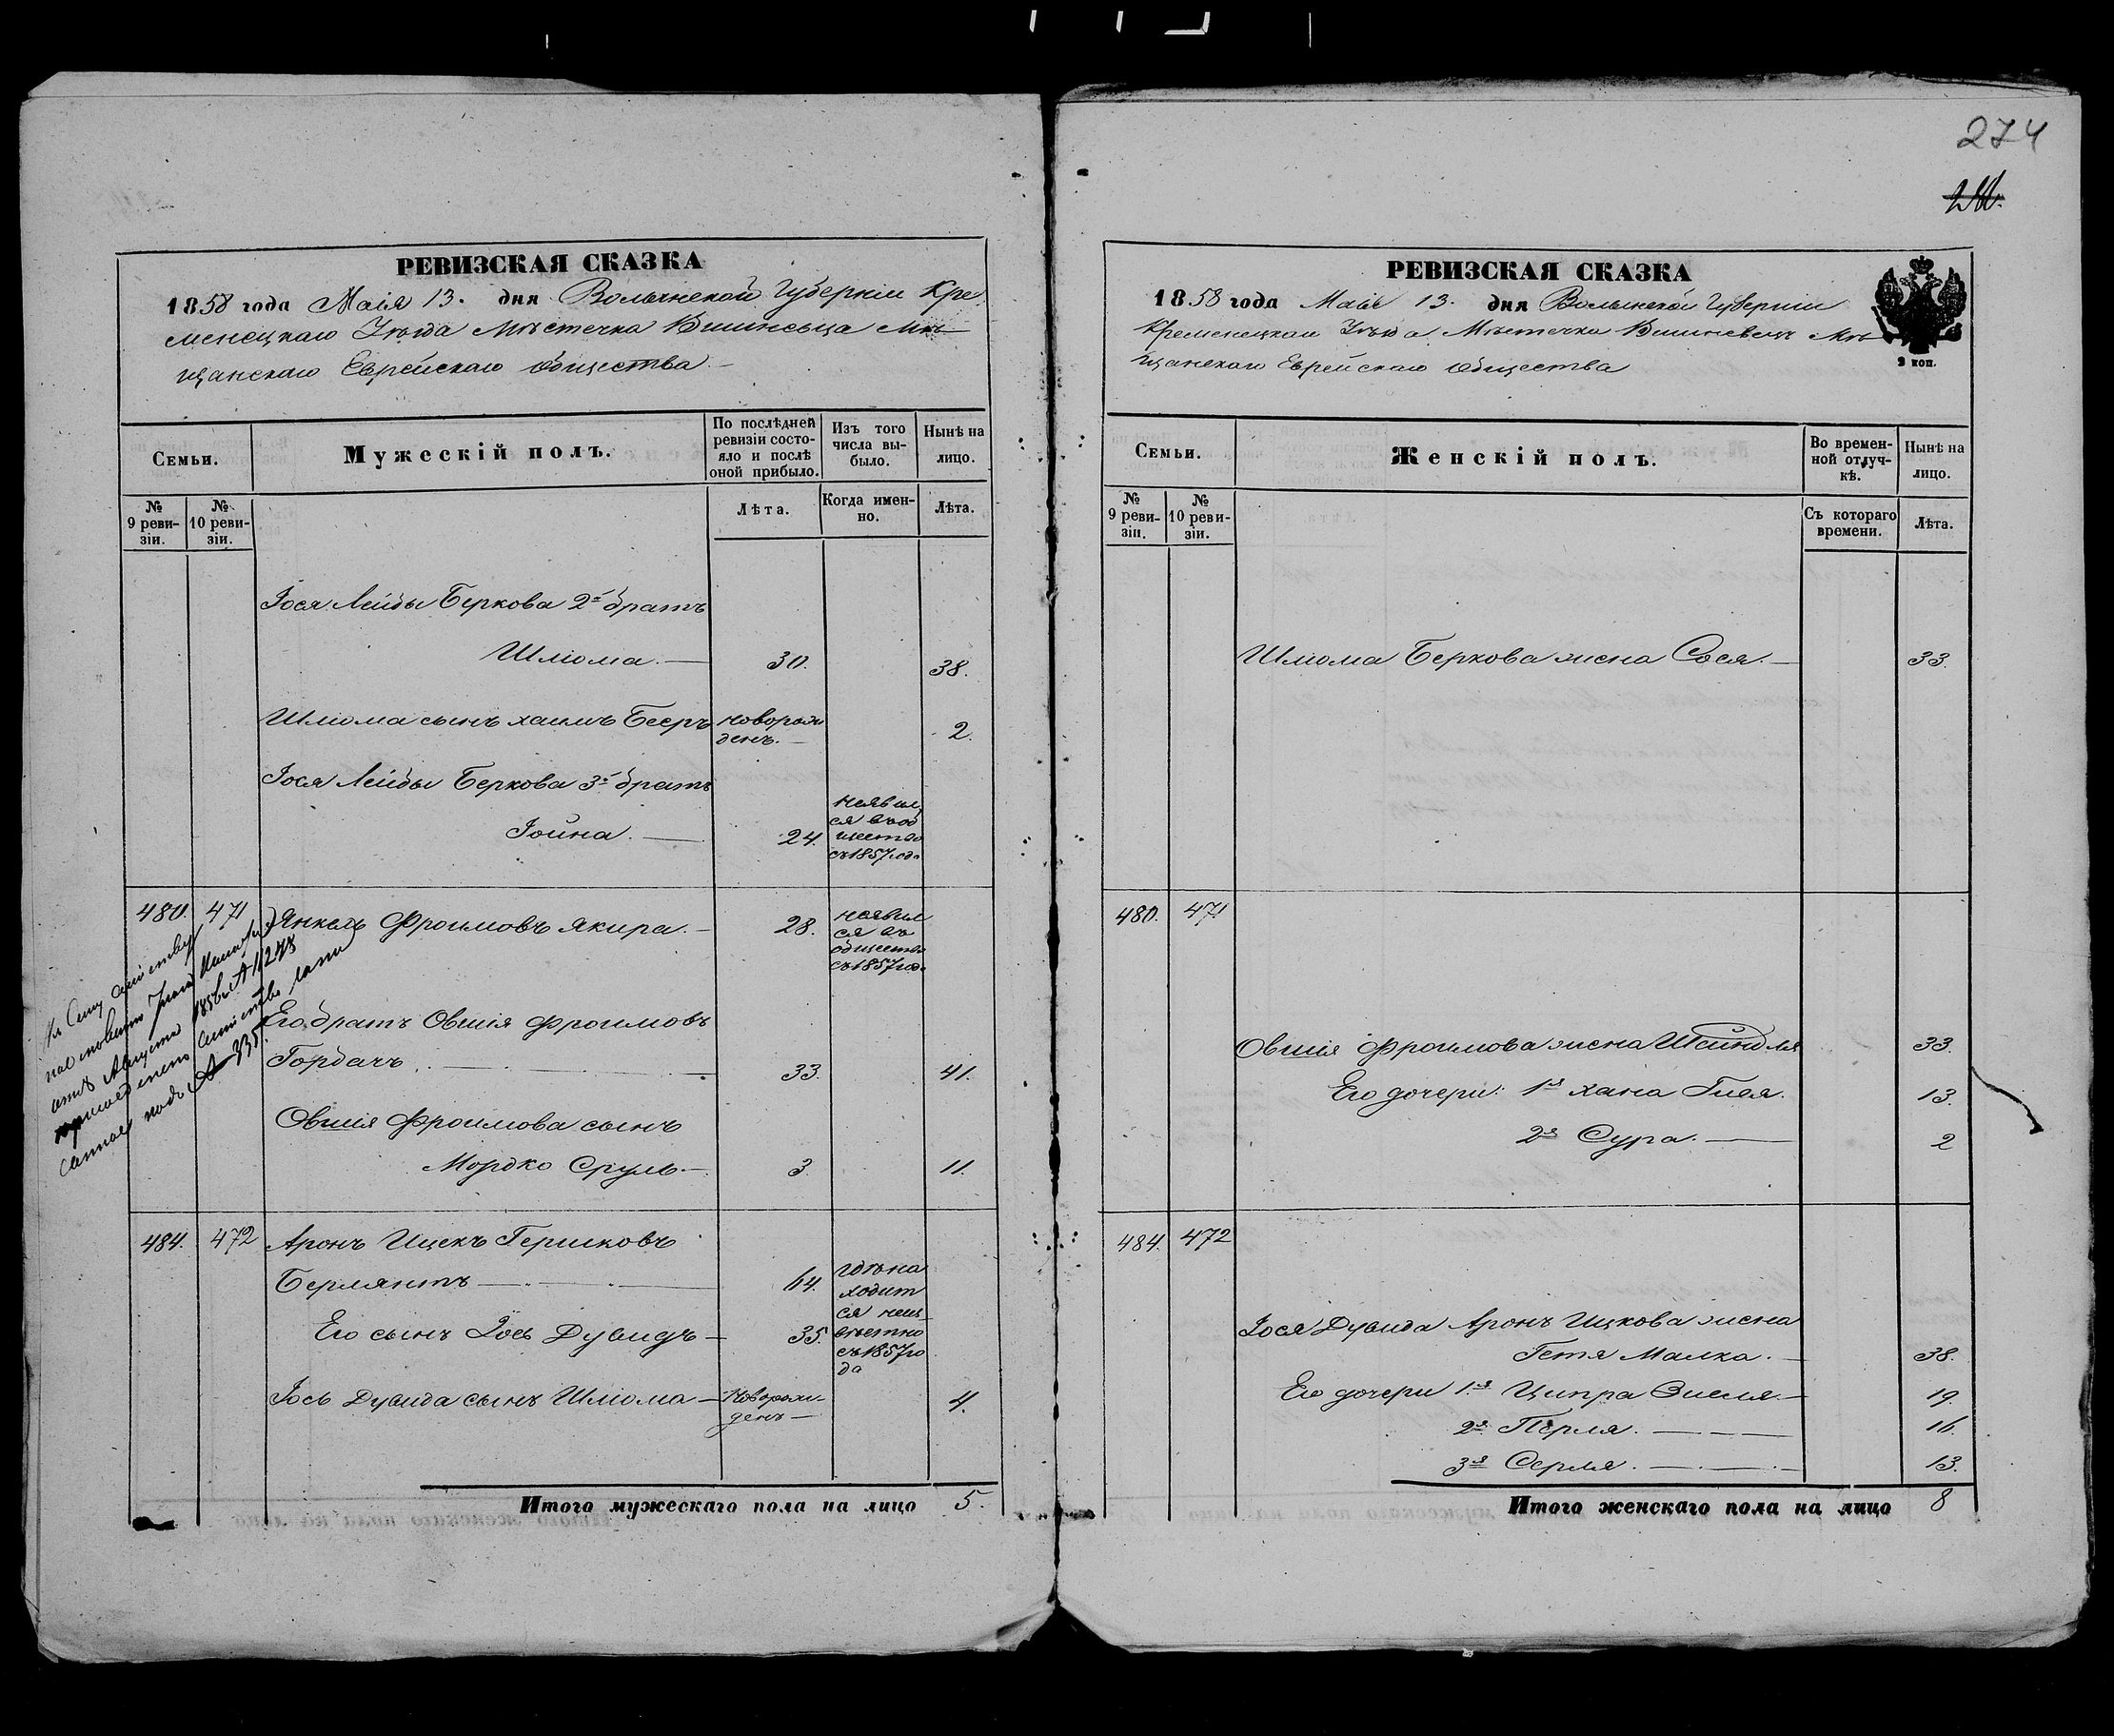 274
РЕВИЗСКАЯ СКАЗКА
1858 года Маія 13. дня Волынской Губерніи Кре
менецкаго Уѣзда Мѣстечка Вишневца Мѣ
щанскаго Еврейскаго общества.
Семьи.
Мужескій полъ.
По послѣдней
ревизіи состо-
яло и послѣ
оной прибыло.
Изъ того
числа вы-
было.
Нынѣ на
лицо.
№
9 реви-
зіи.
№
10 реви-
зіи.
Лѣта.
Когда имен-
но.
Лѣта.
Іося Лейбы Беркова 2й братъ
Шліома. — 30. 38.
Шліома сынъ Хаимъ Беръ новорож
денъ. — 2.
Іося Лейбы Беркова 3й братъ
Іойна. — 24.
неявил
ся въ об
щество
съ 1857 года
480. 471 Янкель Фроимовъ Якира. — 28.
неявил
ся въ
общество
съ 1857 год.
Его братъ Овшія Фроимовъ
Горбачъ. — 33. 41.
Овшія Фроимова сынъ
Мордко Сруль. — 3. 11.
Къ сему семейству
Августа 1856
семейство
подъ № 335.
484. 472 Аронъ Ицекъ Гершковъ
Берлянтъ — 64.
Его сынъ Іось Дувидъ — 35.
гдѣ на
ходит
ся неиз
вѣстно
съ 1857 го
да
Іось Дувида сынъ Шліома — Новорож-
денъ — 4.
Итого мужескаго пола на лицо 5.
РЕВИЗСКАЯ СКАЗКА
1858 года Маія 13. дня Волынской Губерніи
Кременецкаго Уѣзда Мѣстечка Вишневецъ Мѣ
щанскаго Еврейскаго общества
9 коп.
Семьи.
Женскій полъ.
Во времен-
ной отлуч-
кѣ.
Нынѣ на
лицо.
№
9 реви-
зіи.
№
10 реви-
зіи.
Съ котораго
времени.
Лѣта.
Шліома Беркова жена Сося. — 33.
480. 471
Овшія Фроимова жена Шейндля 33.
Его дочери: 1я Хана Гися. 13.
2я Сура. — 2
484. 472
Іося Дувида Аронъ Ицкова жена
Гетя Малка. — 38.
Его дочери 1я Ципра Зисля. — 19.
2я Перля. — 16.
3я Серля. — 13.
Итого женскаго пола на лицо 8